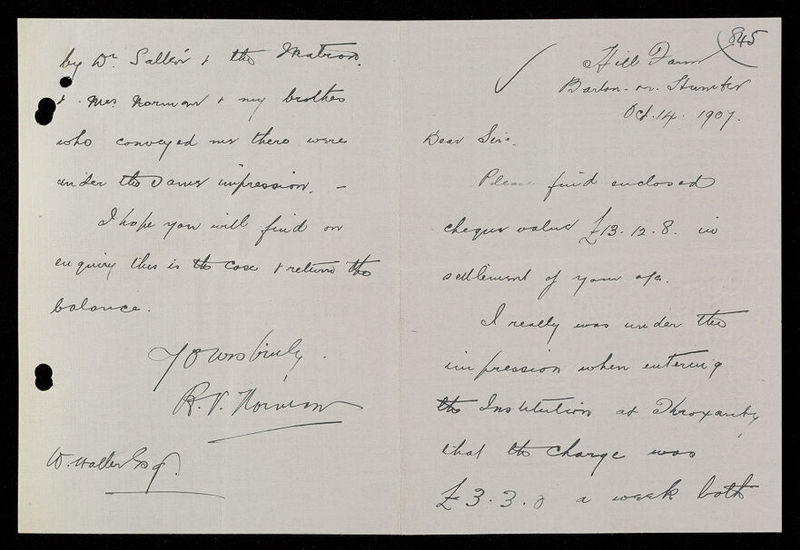 845
Hill Farm
Barton-on-Humber
Oct. 14. 1907.
Dear Sir.
Please find enclosed
cheque value £13.12.8. in
settlement of your a/c.
I really was under the
impression when entering
the Institution at
that the charge was
£3.3.0 a week both
by Dr & the Matron.
& Mrs Norman & my brother
who conveyed me there were
under the same impression. –
I hope you will find on
enquiry this is the case & return the
balance.
Yours truly.
R. V. Norman
W. Waller Esq.